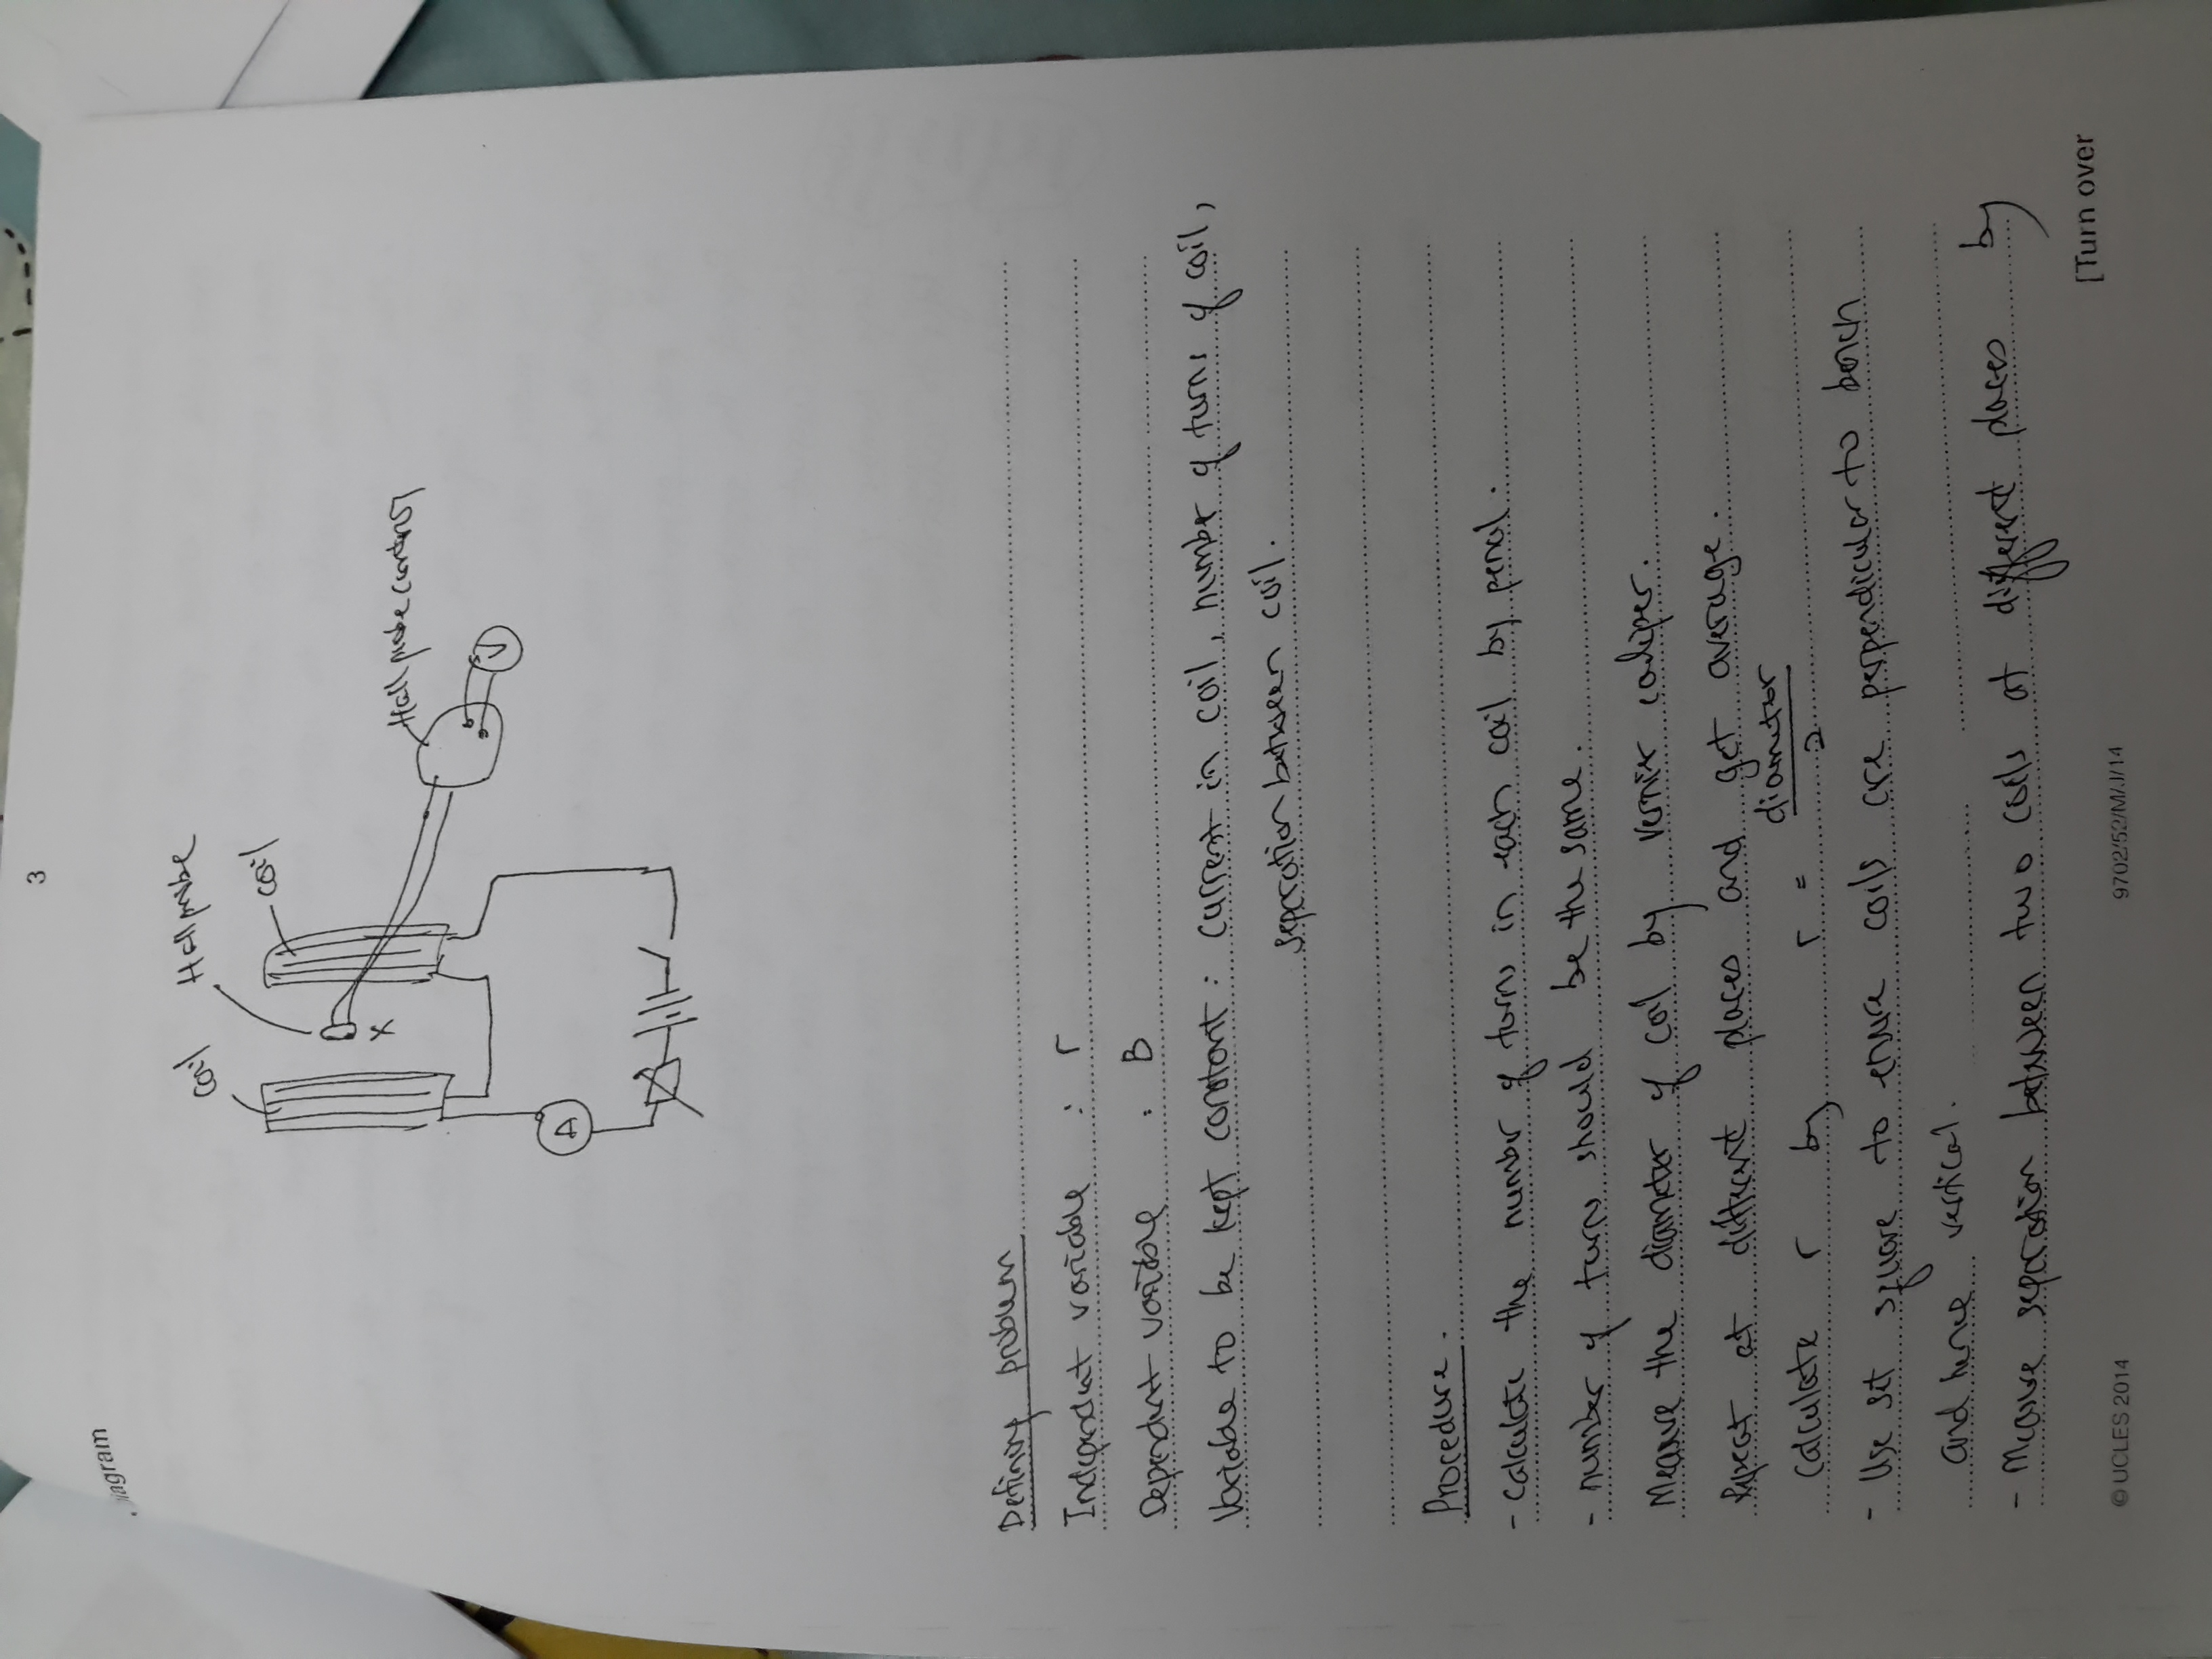 3
iagram
coil
Hall probe
coil
X
Hall probe control
V
A
Defining problem
Independent variable : r
Dependent variable : B
Variable to be kept constant : current in coil, number of turns of coil,
separation between coil.
Procedure.
- calculate the number of turns in each coil by pencil.
- number of turns should be the same.
Measure the diameter of coil by vernier caliper.
Repeat at different places and get average.
Calculate r by r = diameter
2
- Use set square to ensure coils are perpendicular to bench
and hence vertical.
- Measure separation between two coils at different places by
[Turn over
© UCLES 2014
9702/52/M/J/14